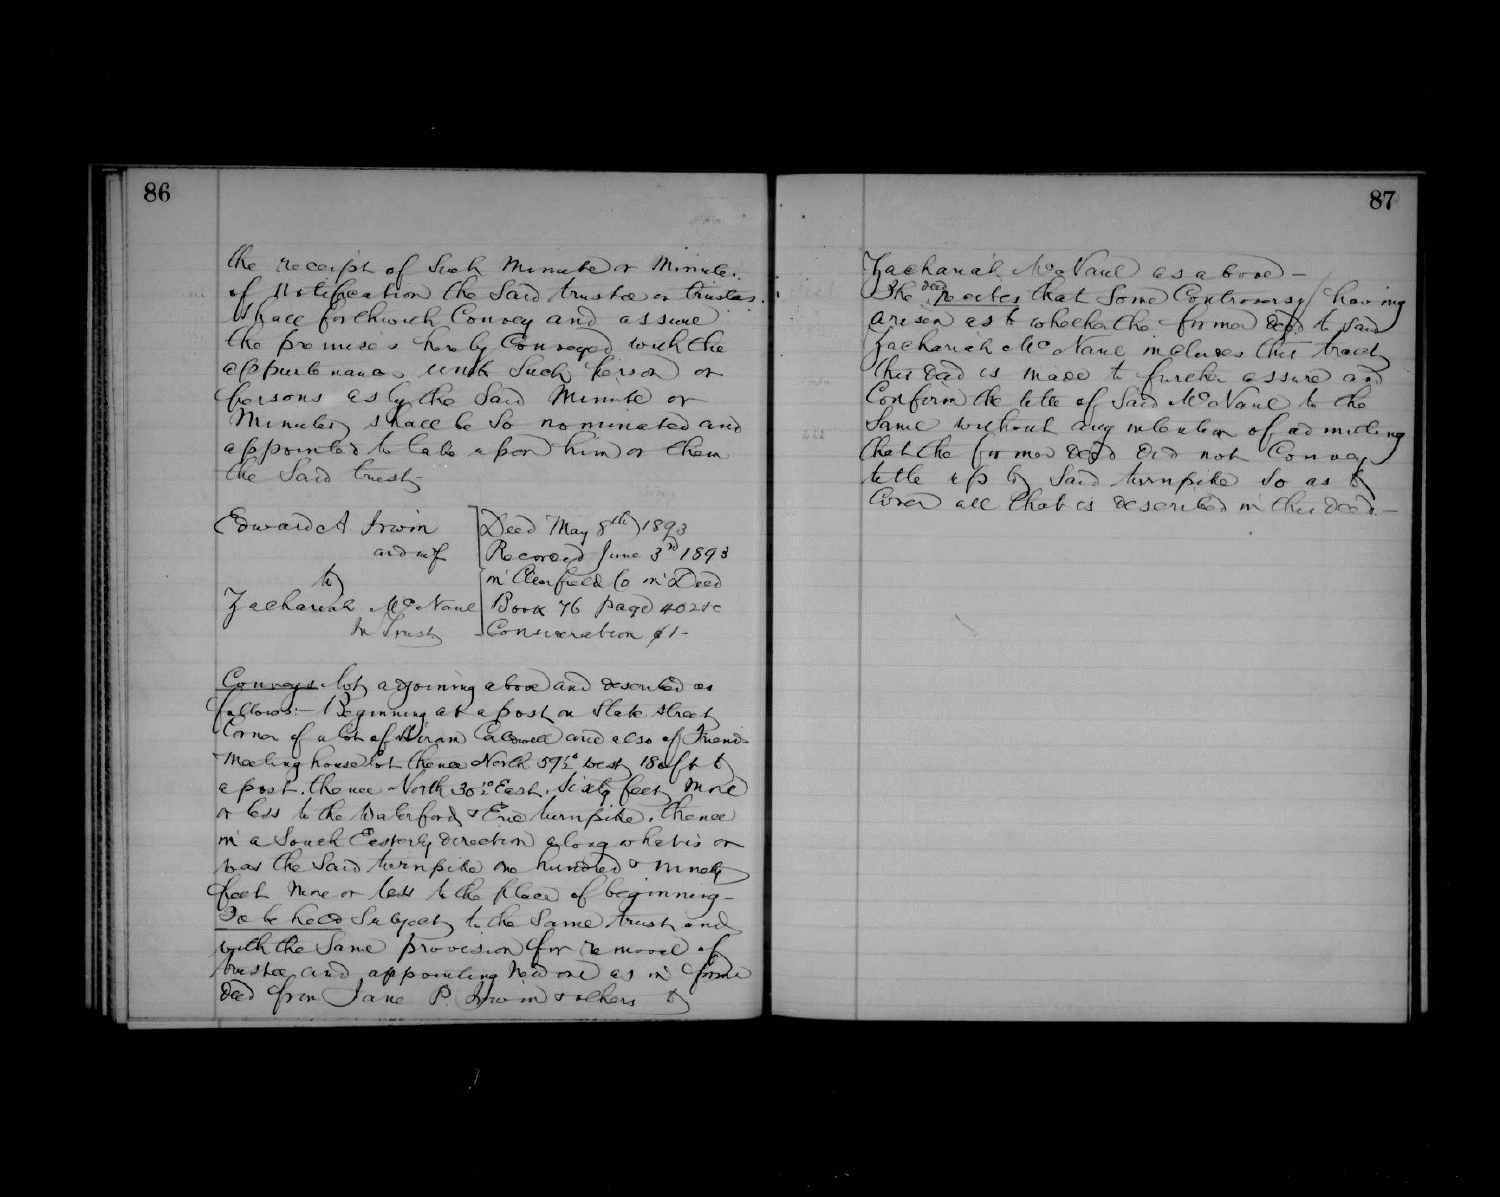 86
the receipt of such Minute or Minutes
of Notification the Said trustee or trustees
shall forthwith Convey and assure
the premises hereby Conveyed with the
appurtenances unto Such person or
persons as by the Said Minute or
Minutes shall be So nominated and
appointed to take upon him or them
the Said trust
Edward A Irwin
and wf
to
Zachariah McNaul
In Trust
Deed May 8th 1893
Recorded June 3rd 1893
in Clearfield Co in Deed
Book 76 page 402 &c
Consideration $1-
Conveys lot adjoining above and described as
follows:- Beginning at a post on State street
Corner of a lot of Hiram Caldwell and also of Friends
Meeting house lot thence North 59½° West 180 ft to
a post. thence North 30½° East. Sixty feet More
or less to the Waterford & Erie turnpike. thence
in a South Easterly direction along what is or
was the Said turnpike one hundred & ninety
feet More or less to the place of beginning-
To be held Subject to the Same trust and
with the Same provision for removal of
trustee and appointing New one as in former
deed from Jane P. Irwin & others to
87
Zachariah McNaul as above -
The deed recites that Some Controversy having
arisen as to whether the former deed to Said
Zachariah McNaul includes this tract
this deed is made to further assure and
Confirm the title of Said McNaul to the
Same without any intention of admitting
that the former deed did not Convey
title up to Said turnpike So as to
Cover all that is described in this deed.-